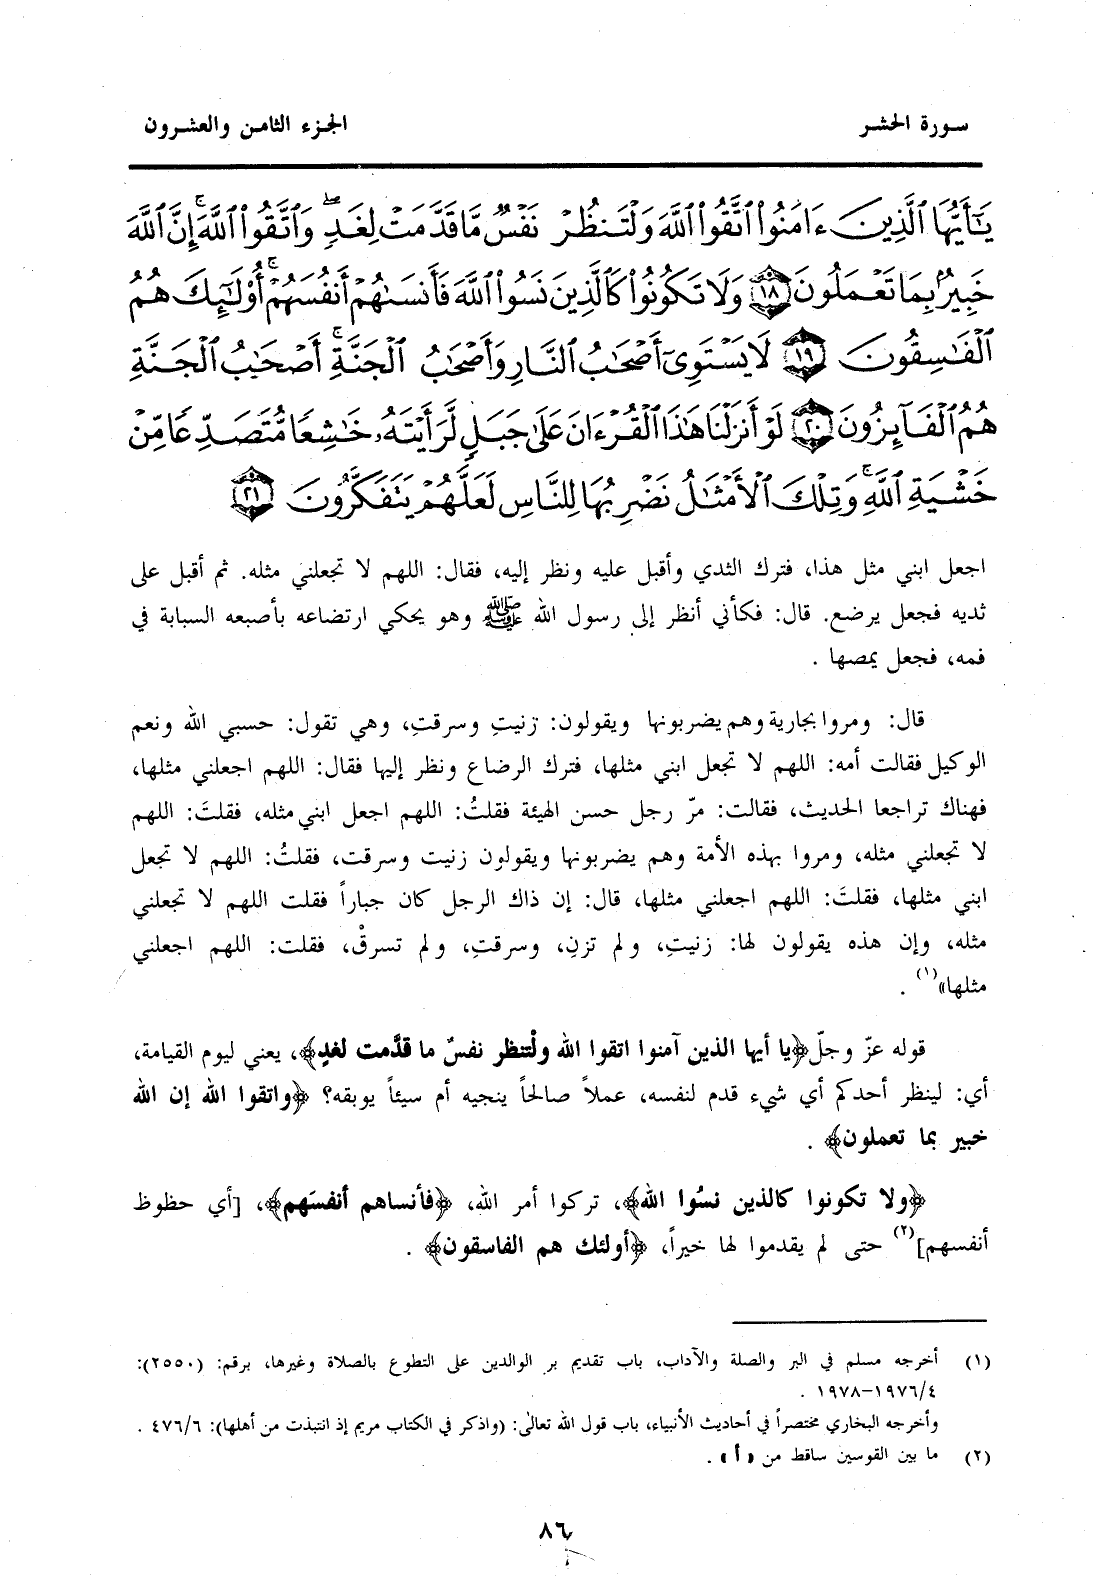 سورة الحشر
الجزء الثامن والعشرون
يَٰٓأَيُّهَا ٱلَّذِينَ ءَامَنُوا۟ ٱتَّقُوا۟ ٱللَّهَ وَلْتَنظُرْ نَفْسٌ مَّا قَدَّمَتْ لِغَدٍ ۖ وَٱتَّقُوا۟ ٱللَّهَ ۚ إِنَّ ٱللَّهَ
خَبِيرٌۢ بِمَا تَعْمَلُونَ ﴿١٨﴾ وَلَا تَكُونُوا۟ كَٱلَّذِينَ نَسُوا۟ ٱللَّهَ فَأَنسَىٰهُمْ أَنفُسَهُمْ ۚ أُو۟لَٰٓئِكَ هُمُ
ٱلْفَٰسِقُونَ ﴿١٩﴾ لَا يَسْتَوِىٓ أَصْحَٰبُ ٱلنَّارِ وَأَصْحَٰبُ ٱلْجَنَّةِ ۚ أَصْحَٰبُ ٱلْجَنَّةِ
هُمُ ٱلْفَآئِزُونَ ﴿٢٠﴾ لَوْ أَنزَلْنَا هَٰذَا ٱلْقُرْءَانَ عَلَىٰ جَبَلٍ لَّرَأَيْتَهُۥ خَٰشِعًا مُّتَصَدِّعًا مِّنْ
خَشْيَةِ ٱللَّهِ ۚ وَتِلْكَ ٱلْأَمْثَٰلُ نَضْرِبُهَا لِلنَّاسِ لَعَلَّهُمْ يَتَفَكَّرُونَ ﴿٢١﴾
اجعل ابني مثل هذا، فترك الثدي وأقبل عليه ونظر إليه، فقال: اللهم لا تجعلني مثله. ثم أقبل على
ثديه فجعل يرضع. قال: فكأني أنظر إلى رسول الله ﷺ وهو يحكي ارتضاعه بأصبعه السبابة في
فمه، فجعل يمصها .
قال: ومروا بجارية وهم يضربونها ويقولون: زنيتِ وسرقتِ، وهي تقول: حسبي الله ونعم
الوكيل فقالت أمه: اللهم لا تجعل ابني مثلها، فترك الرضاع ونظر إليها فقال: اللهم اجعلني مثلها،
فهناك تراجعا الحديث، فقالت: مرّ رجل حسن الهيئة فقلتُ: اللهم اجعل ابني مثله، فقلتَ: اللهم
لا تجعلني مثله، ومروا بهذه الأمة وهم يضربونها ويقولون زنيت وسرقت، فقلتُ: اللهم لا تجعل
ابني مثلها، فقلتَ: اللهم اجعلني مثلها، قال: إن ذاك الرجل كان جباراً فقلت اللهم لا تجعلني
مثله، وإن هذه يقولون لها: زنيتِ، ولم تزنِ، وسرقتِ، ولم تسرقْ، فقلت: اللهم اجعلني
مثلها»(١) .
قوله عزّ وجلّ ﴿يا أيها الذين آمنوا اتقوا الله ولْتنظر نفسٌ ما قدَّمت لغدٍ﴾، يعني ليوم القيامة،
أي: لينظر أحدكم أي شيء قدم لنفسه، عملاً صالحاً ينجيه أم سيئاً يوبقه؟ ﴿واتقوا الله إن الله
خبير بما تعملون﴾ .
﴿ولا تكونوا كالذين نسُوا الله﴾، تركوا أمر الله، ﴿فأنساهم أنفسَهم﴾، [أي حظوظ
أنفسهم](٢) حتى لم يقدموا لها خيراً، ﴿أولئك هم الفاسقون﴾ .
(١) أخرجه مسلم في البر والصلة والآداب، باب تقديم بر الوالدين على التطوع بالصلاة وغيرها، برقم: (٢٥٥٠):
٤/١٩٧٦-١٩٧٨ .
وأخرجه البخاري مختصراً في أحاديث الأنبياء، باب قول الله تعالى: (واذكر في الكتاب مريم إذ انتبذت من أهلها): ٤٧٦/٦ .
(٢) ما بين القوسين ساقط من «أ» .
٨٦